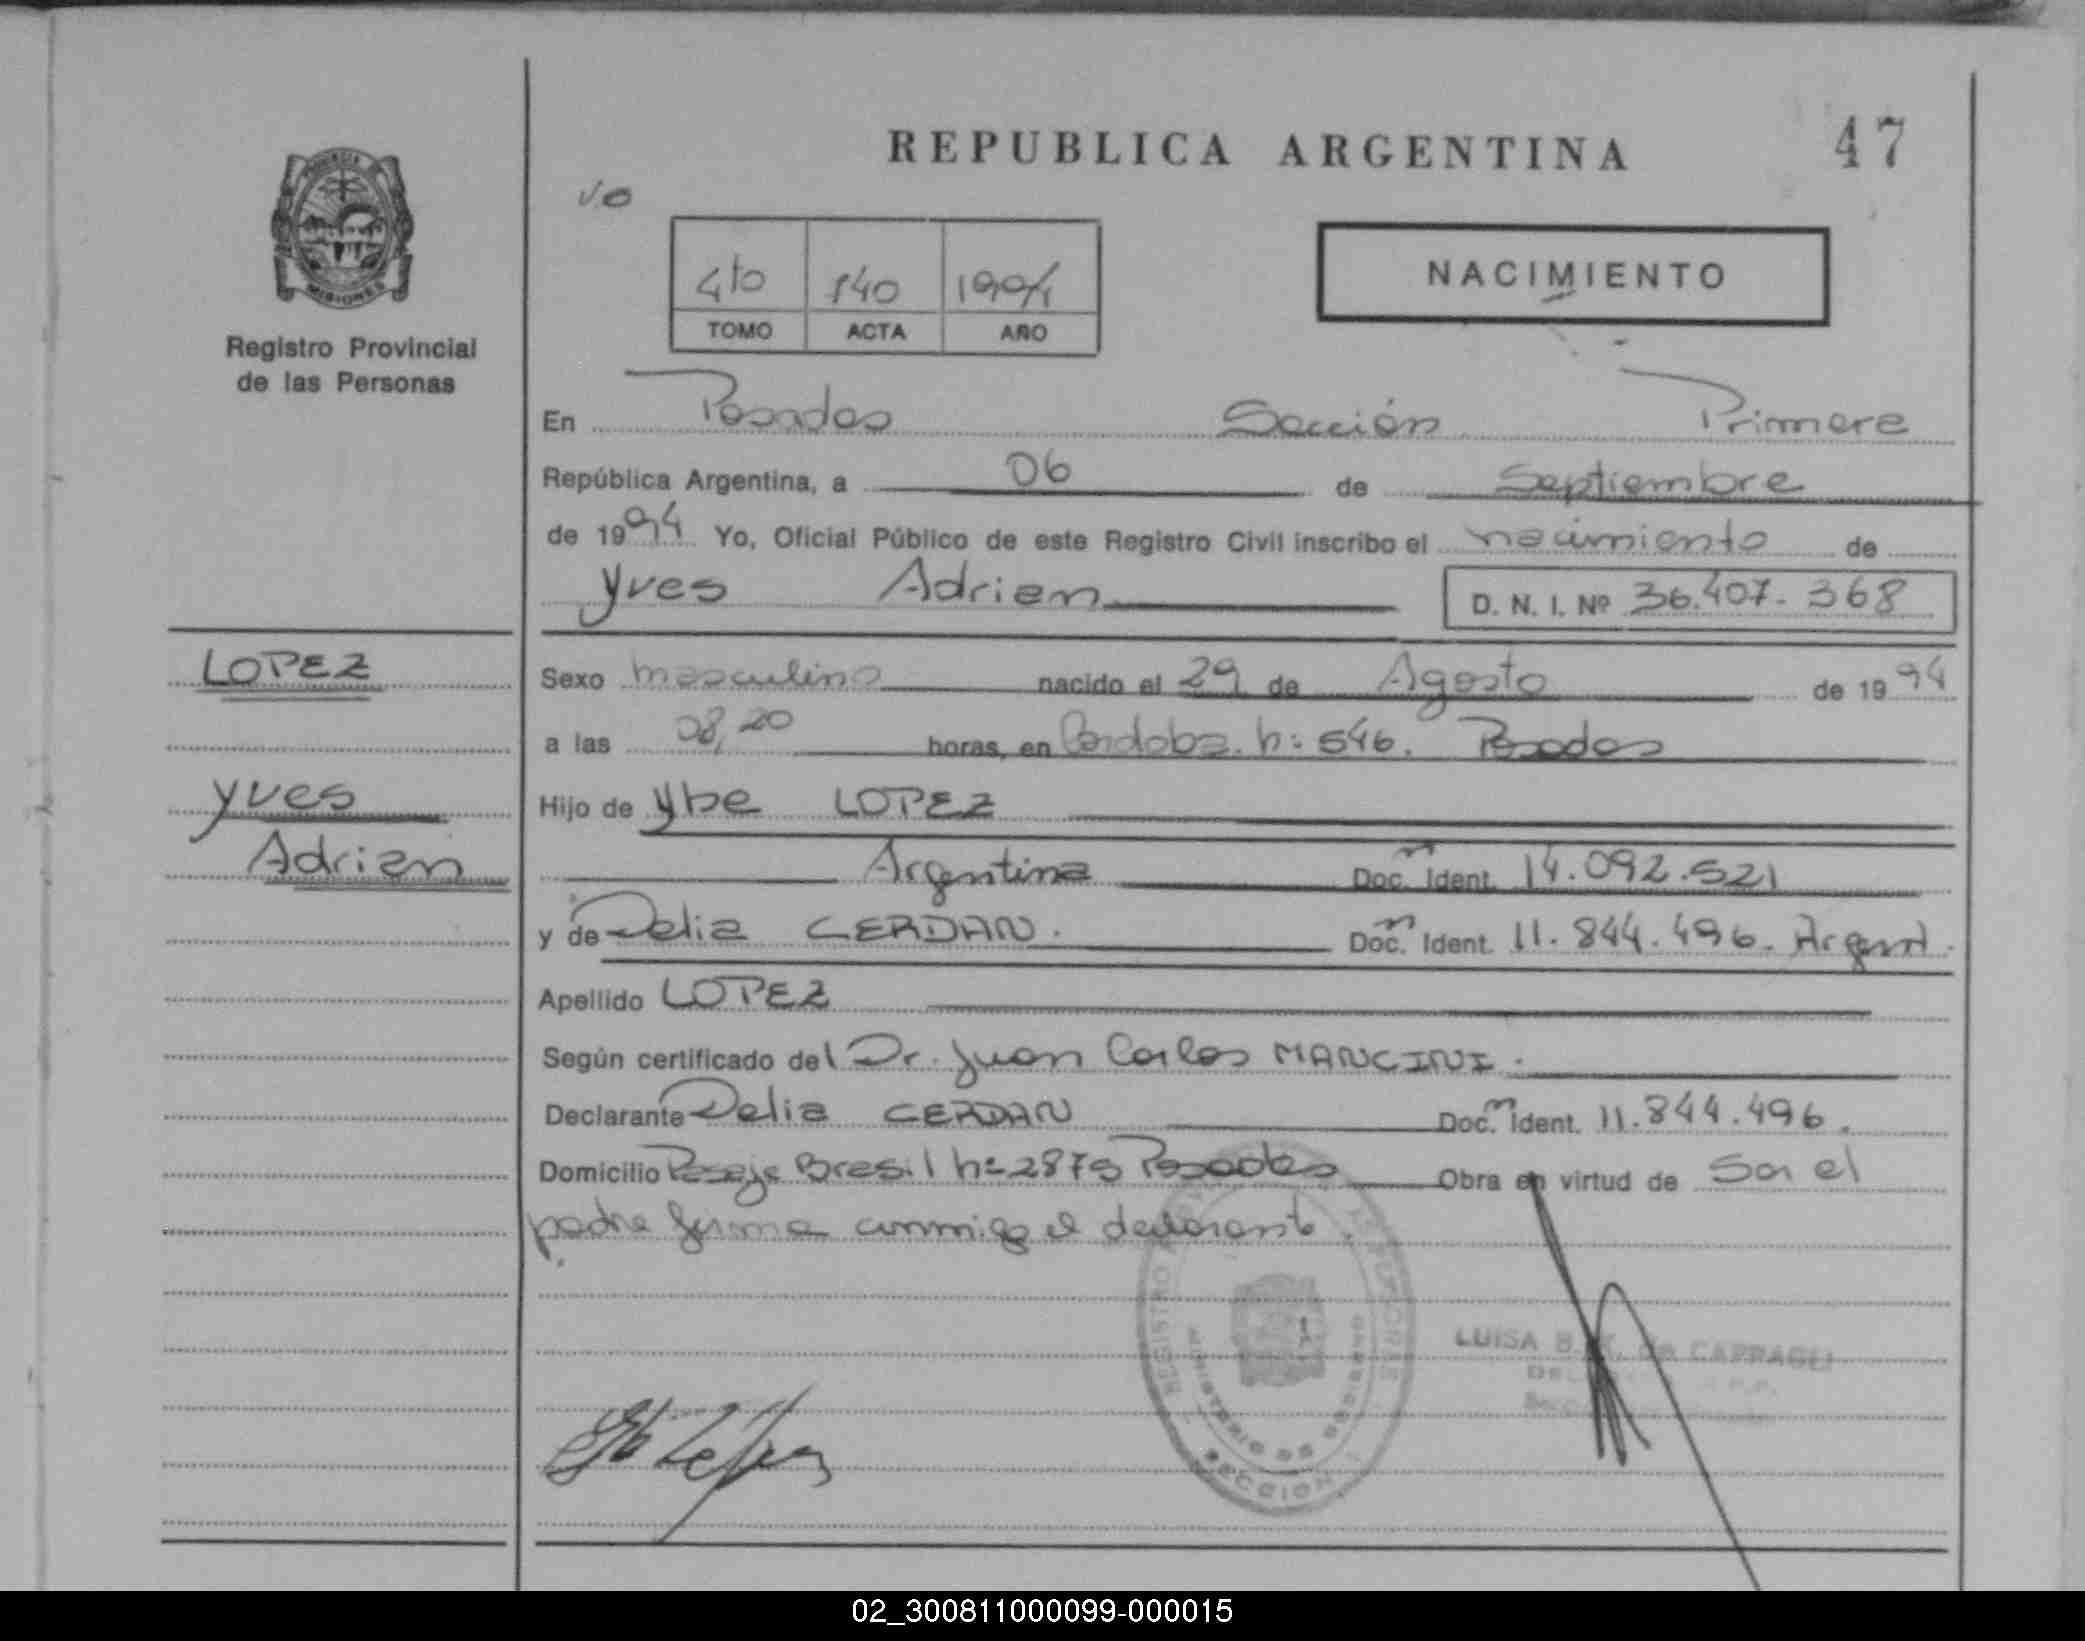 REPUBLICA ARGENTINA
47
PROVINCIA DE
MISIONES
Registro Provincial
de las Personas
4to 140 1994
TOMO ACTA AÑO
NACIMIENTO
En Posadas Sección Primera
República Argentina, a 06 de Septiembre
de 1994 Yo, Oficial Público de este Registro Civil inscribo el nacimiento de
Yves Adrian D. N. I. Nº 36.407.368
LOPEZ
Yves
Adrian
Sexo masculino nacido el 29 de Agosto de 1994
a las 08,20 horas, en Cordoba nº 546. Posadas
Hijo de Ybe LOPEZ
Argentina Doc. Ident. 14.092.521
y de Delia CERDAN. Doc. Ident. 11.844.496. Argent.
Apellido LOPEZ
Según certificado del Dr. Juan Carlos MANCINI.
Declarante Delia CERDAN Doc. Ident. 11.844.496.
Domicilio Pasaje Brasil nº 2875 Posadas Obra en virtud de Ser el
padre firma conmigo el declarante.
REGISTRO
MINISTERIO DE GOBIERNO
SECCION
LUISA B. K. de CAPPAGLI
02_300811000099-000015